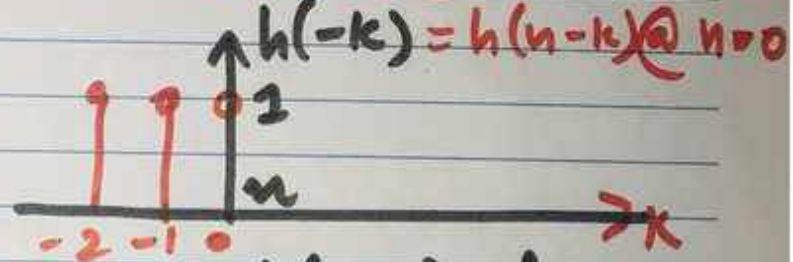 h(-k) = h(n-k)@ n=0
1
n
-2 -1 0 k